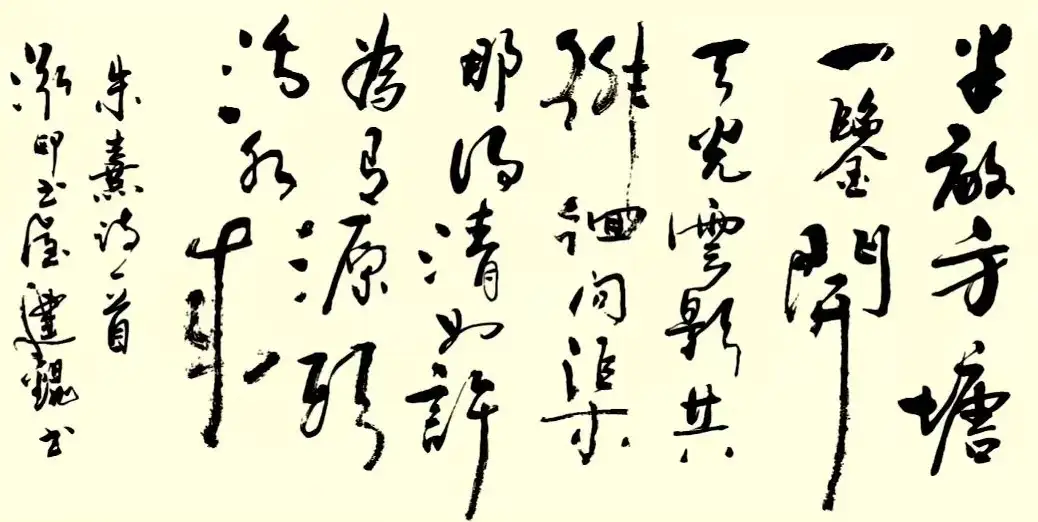 半畝方塘
一鑒開
天光雲影共
徘徊问渠
那得清如許
為有源頭
活水来
朱熹诗一首
印书屋 书